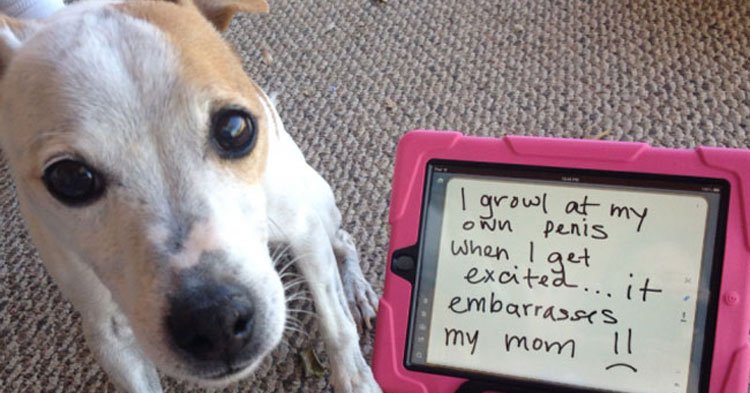 I growl at my
own penis
when I get
excited... it
embarrasses
my mom !!